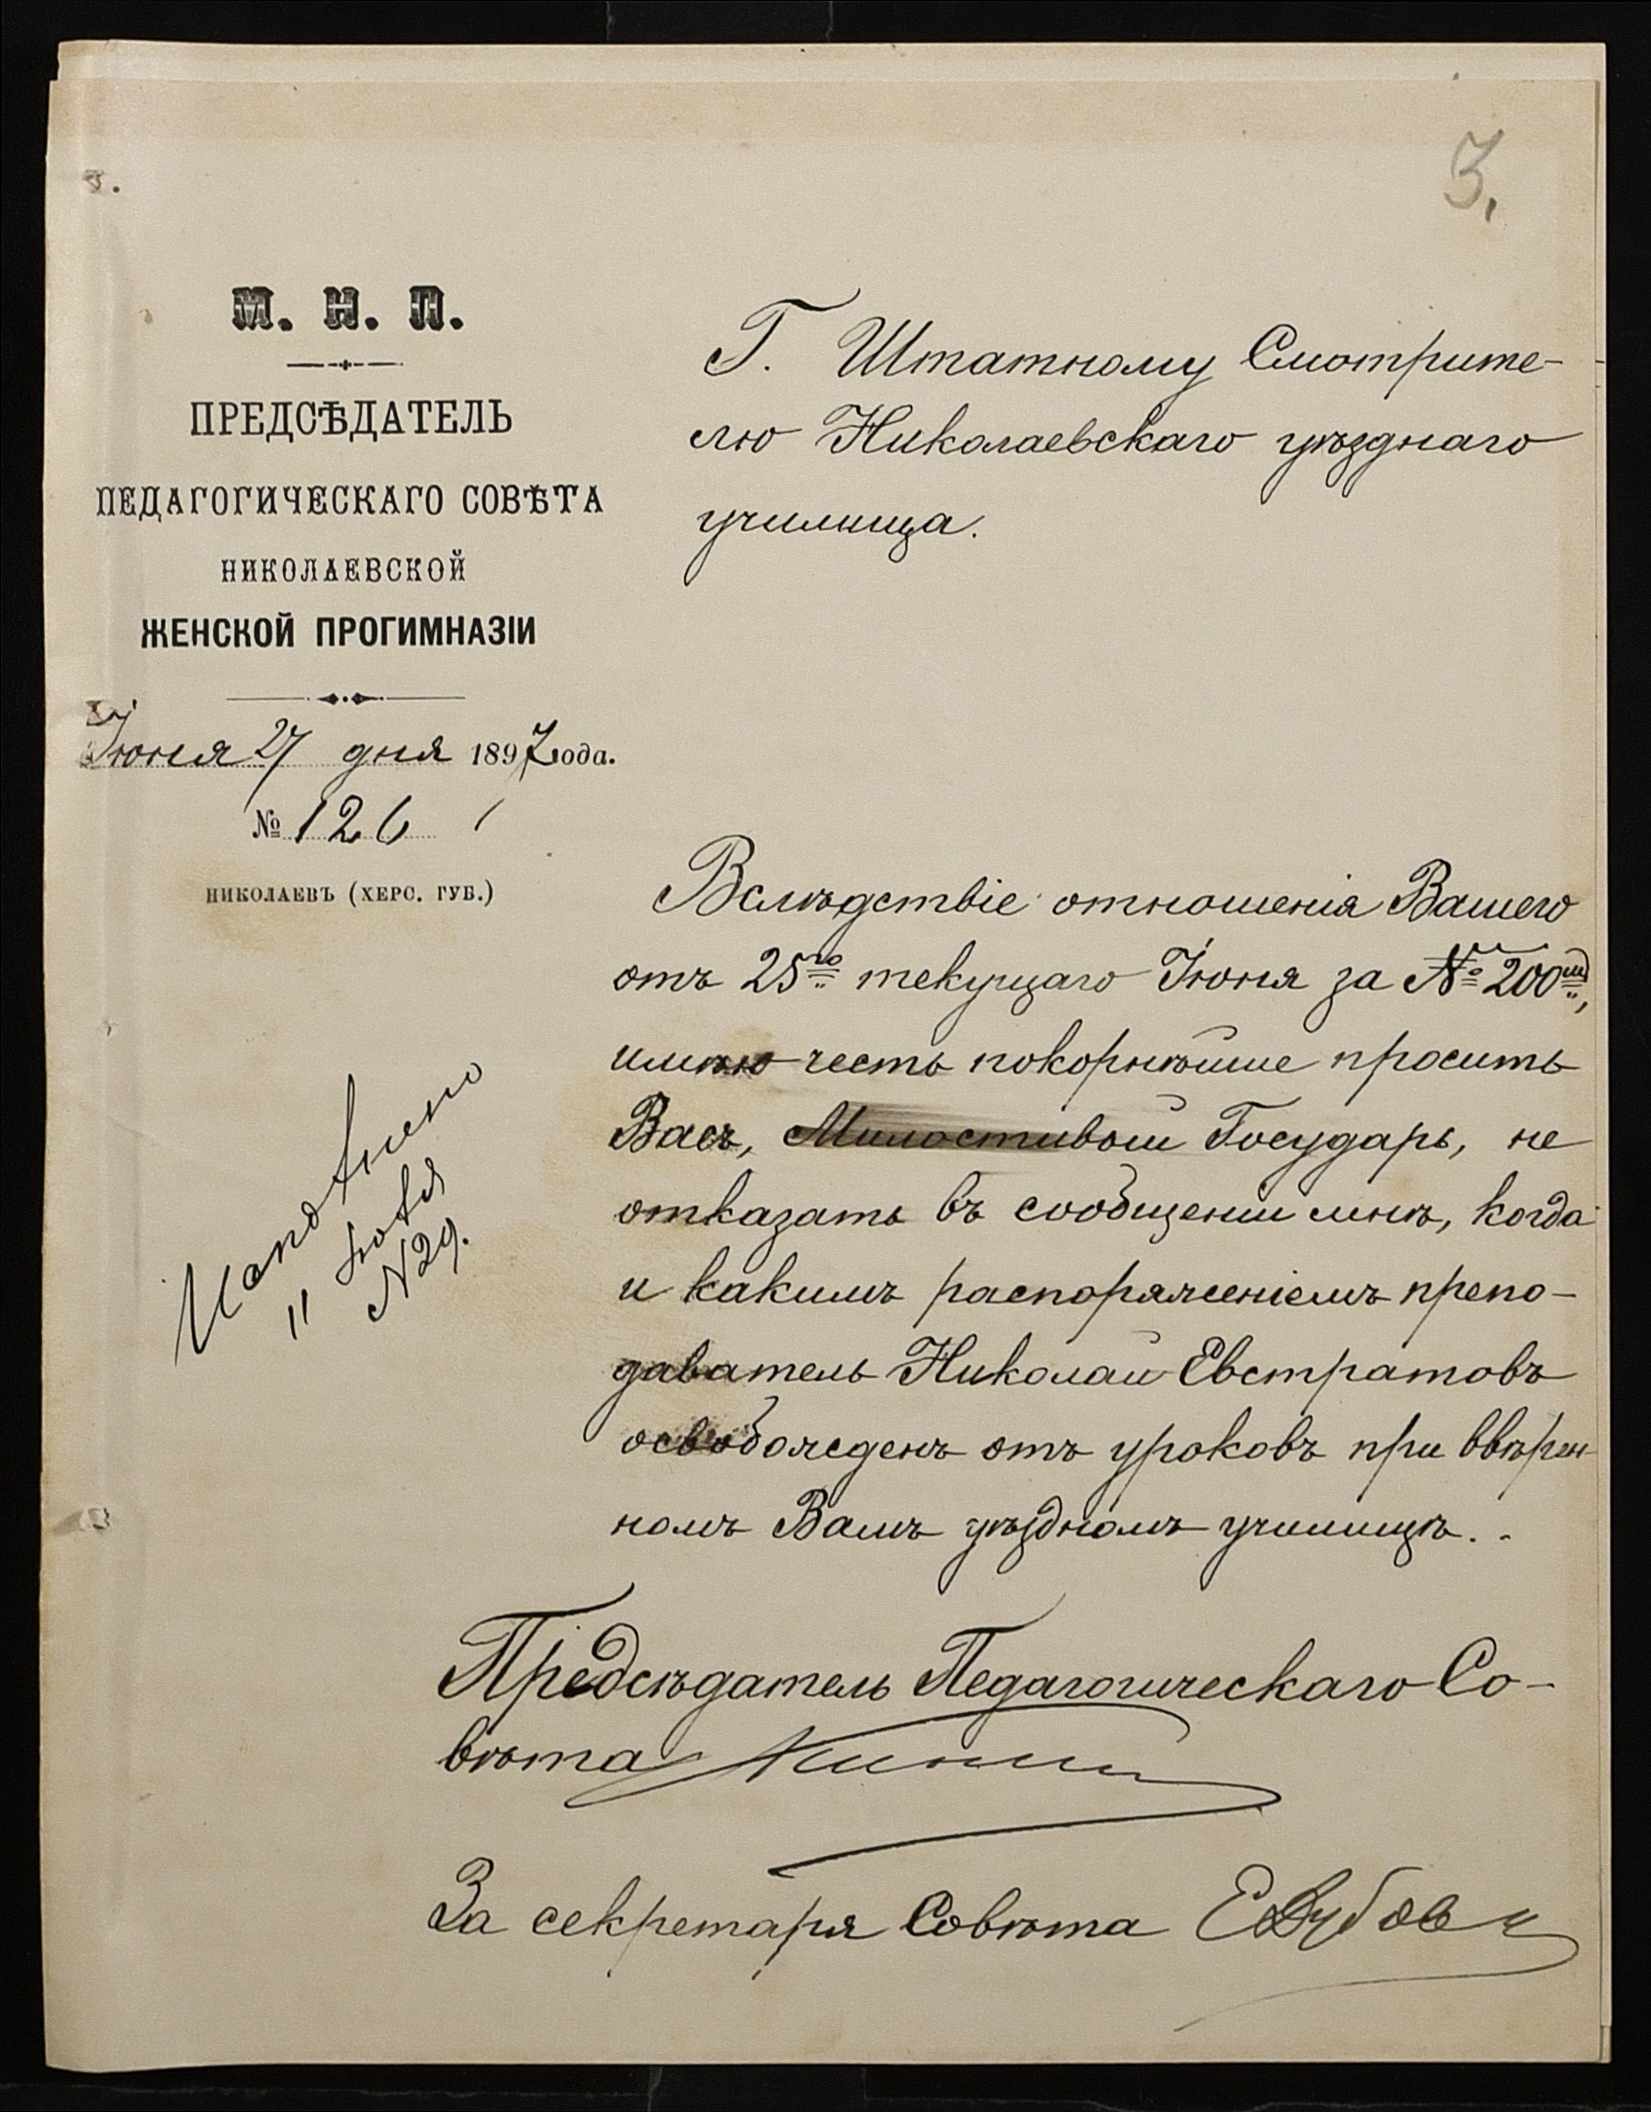 3.
М. Н. П.
ПРЕДСѢДАТЕЛЬ
ПЕДАГОГИЧЕСКАГО СОВѢТА
НИКОЛАЕВСКОЙ
ЖЕНСКОЙ ПРОГИМНАЗІИ
Іюня 27 дня 1897 года.
№ 126
НИКОЛАЕВЪ (ХЕРС. ГУБ.)
Г. Штатному Смотрите-
лю Николаевскаго уѣзднаго
училища.
Вслѣдствіе отношенія Вашего
отъ 25го текущаго Іюня за № 200мъ,
имѣю честь покорнѣйше просить
Васъ, Милостивый Государь, не
отказать въ сообщеніи мнѣ, когда
и какимъ распоряженіемъ препо-
даватель Николай Евстратовъ
освобожденъ отъ уроковъ при ввѣрен-
номъ Вамъ уѣздномъ училищѣ.
11
N 29.
Предсѣдатель Педагогическаго Со-
вѣта
За секретаря Совѣта